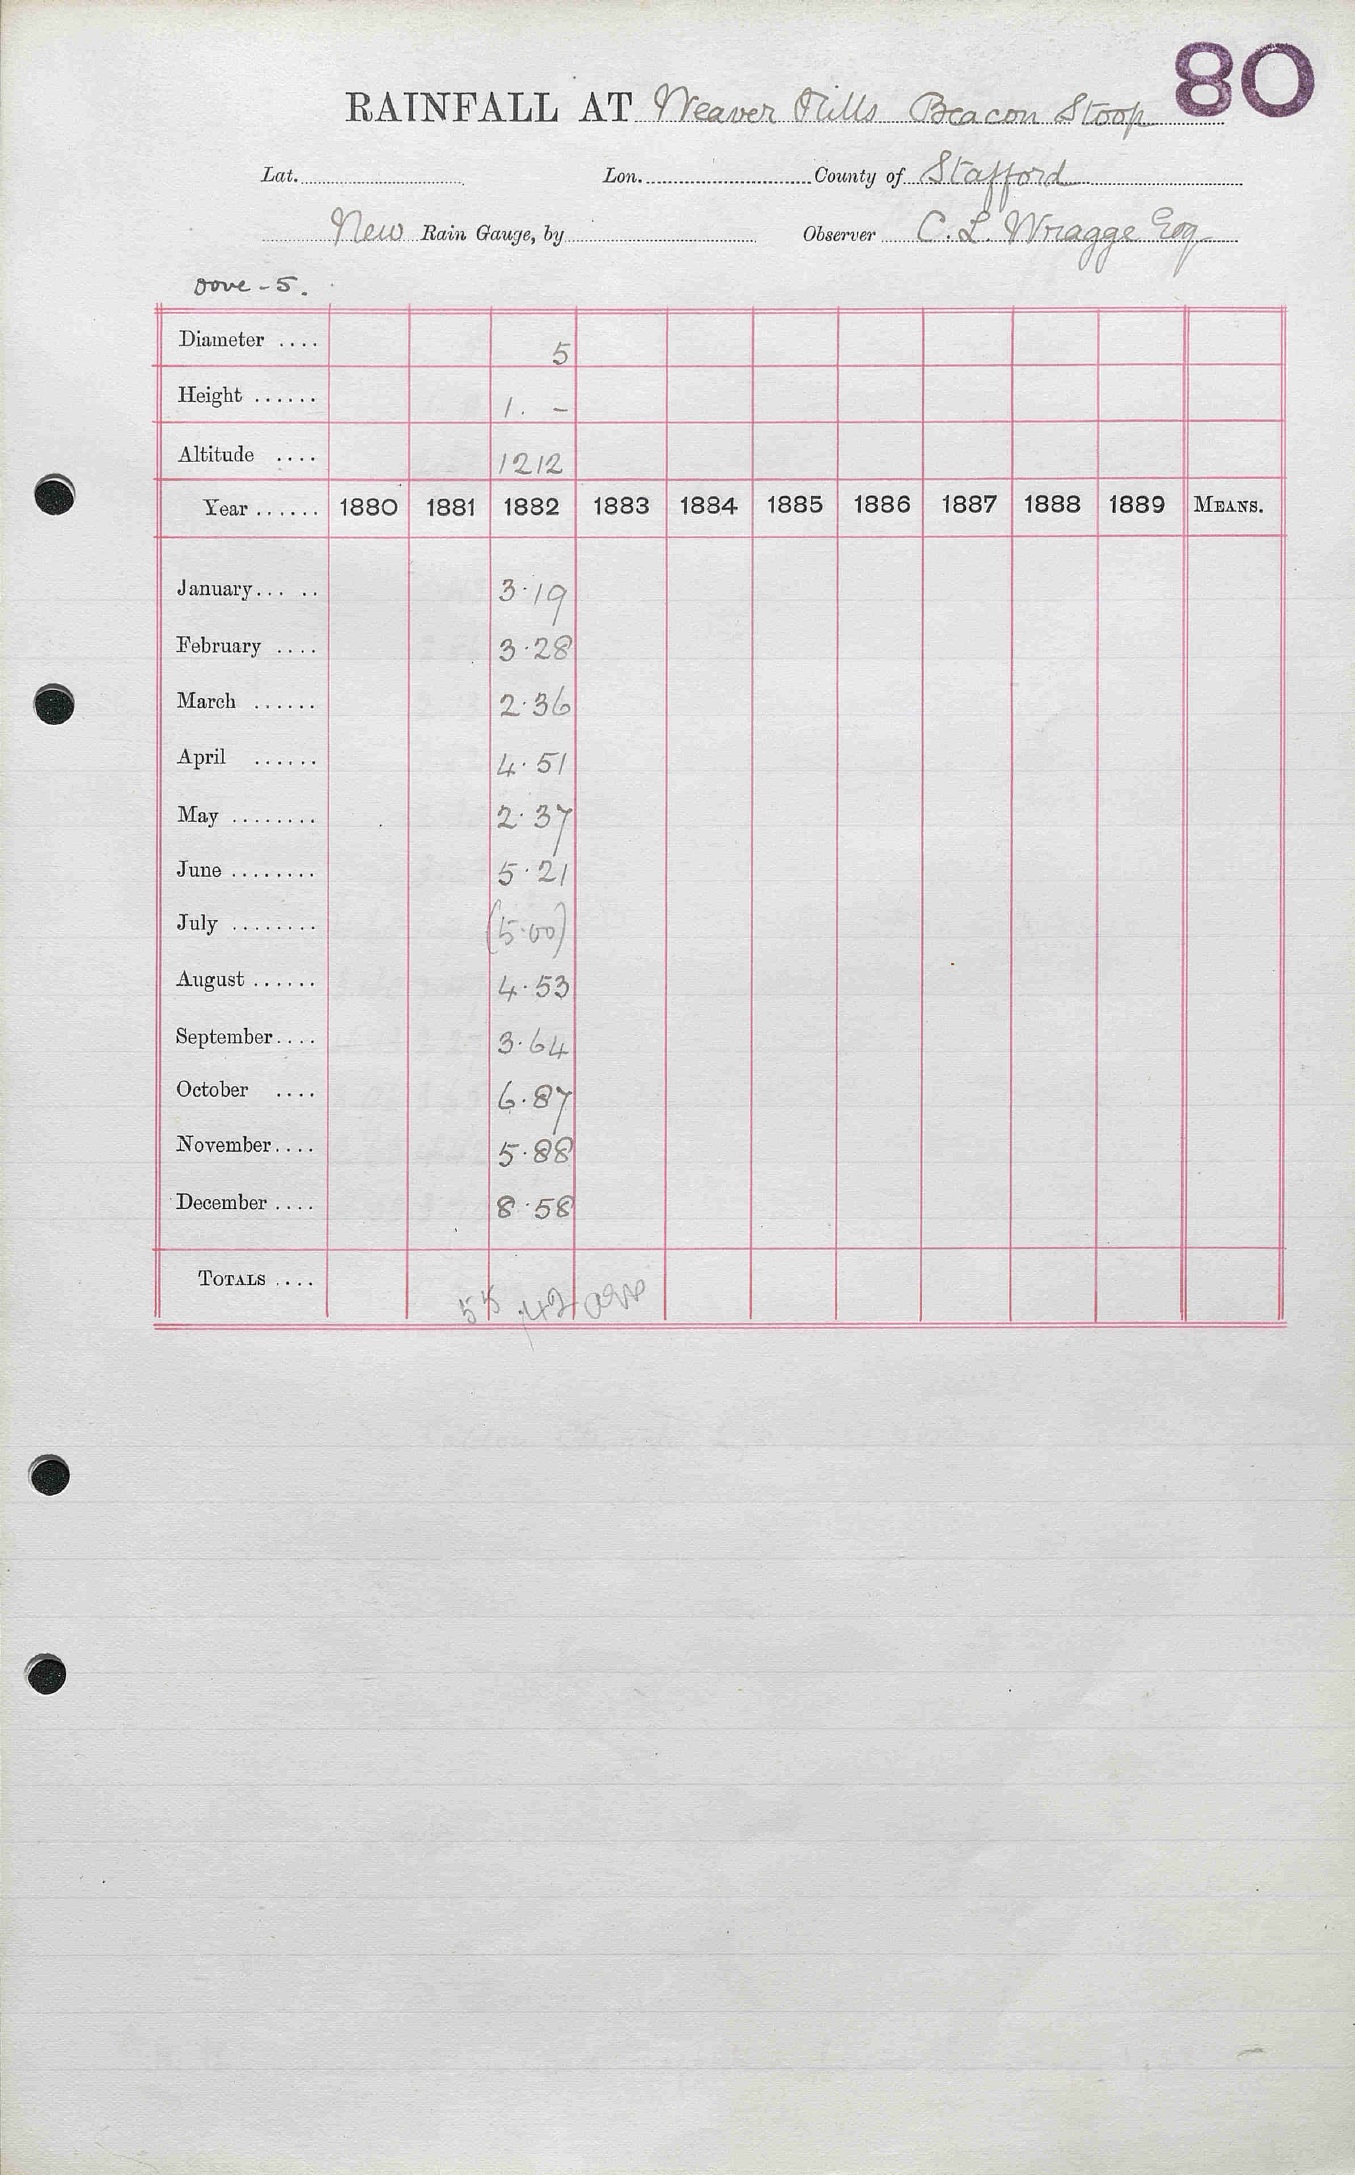 80
RAINFALL AT Weaver Hills Beacon Stoop
Lat. Lon. County of Stafford
New Rain Gauge, by Observer C. L. Wragge Esq
Dove - 5.
Diameter .... 5
Height ...... 1. -
Altitude .... 1212
Year ...... 1880 1881 1882 1883 1884 1885 1886 1887 1888 1889 MEANS.
January... .. 3.19
February .... 3.28
March ...... 2.36
April ...... 4.51
May ........ 2.37
June ........ 5.21
July ........ (5.00)
August ...... 4.53
September.... 3.64
October .... 6.87
November.... 5.88
December .... 8.58
TOTALS .... 55.42